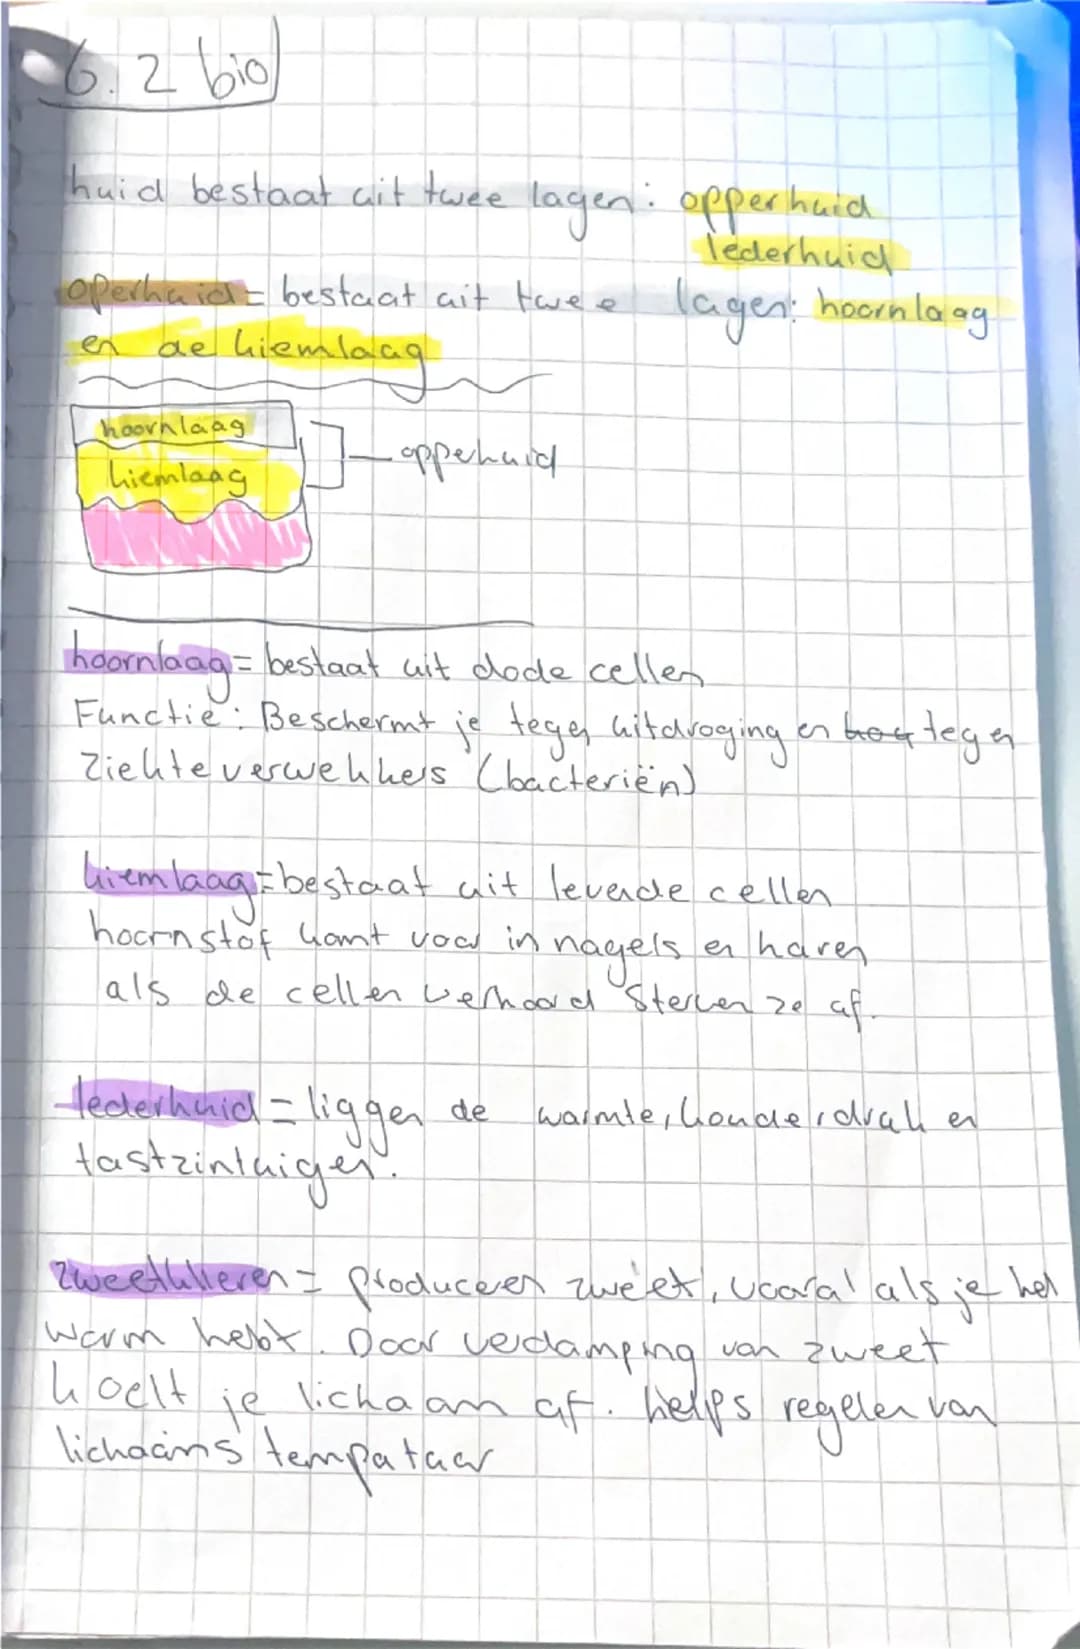 6.2 bio
huid bestaat uit twee lagen: opperhuid
lederhuid
operhuid = bestaat uit twee lagen: hoornlaag
en de kiemlaag
hoornlaag
kiemlaag
opperhuid
hoornlaag = bestaat uit dode cellen
Functie: Beschermt je tegen uitdroging en tegen
Ziekteverwekkers (bacteriën)
kiemlaag = bestaat uit levende cellen
hoornstof komt voor in nagels en haren
als de cellen verhoord sterven ze af.
lederhuid = liggen de warmte, koude, druk en
tastzintuigen.
zweetklieren = produceren zweet, vooral als je het
warm hebt. Door verdamping van zweet
koelt je lichaam af. helps regelen van
lichaams tempatuur